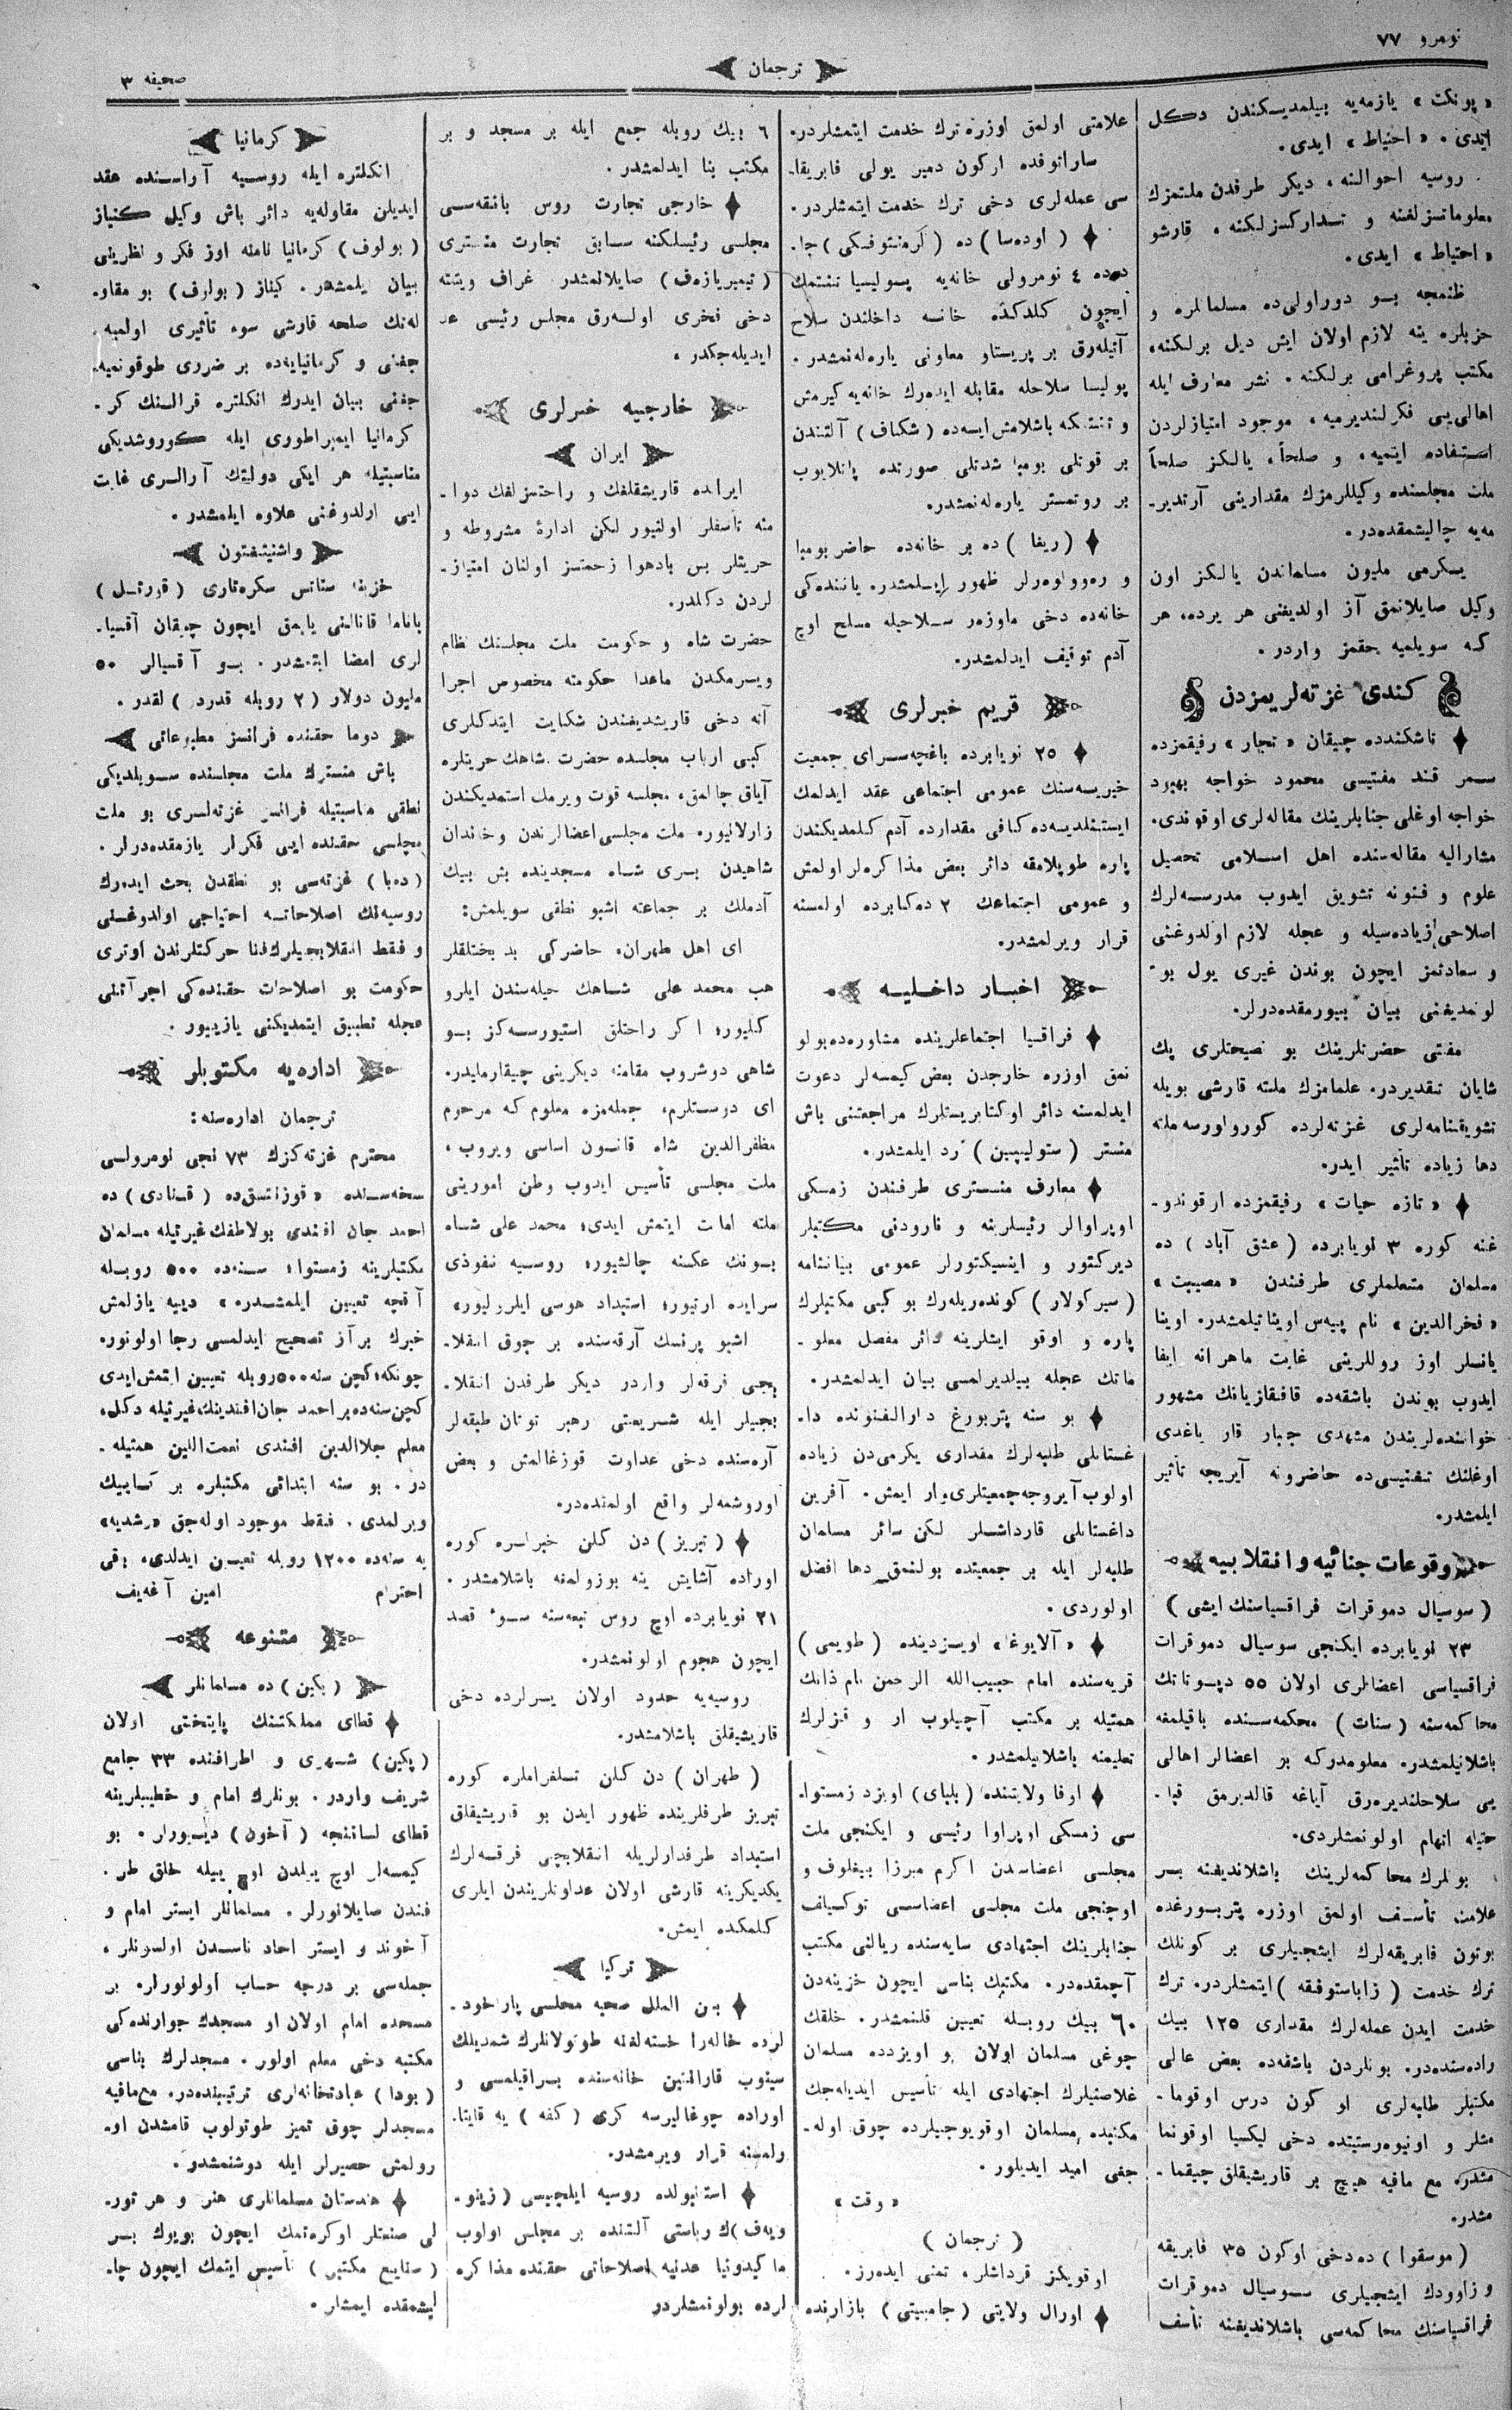 نومرو ٧٧
ترجمان
صحیفه ٣
«پونکت» یازمه‌یه بیلمدیکندن دکل
ایدی. «احتیاط» ایدی.
روسیه احوالنه، دیکر طرفدن ملتمزك
معلوماتسزلغنه و تدارکسزلکنه، قارشو
«احتیاط» ایدی.
ظنمجه بو دوراولی‌ده مسلمانلره و
حزبلره ینه لازم اولان ایش دیل برلکنه،
مکتب پروغرامی برلکنه. نشر معارف ایله
اهالی‌یی فکرلندیرمیه، موجود امتیازلردن
استفاده ایتمیه، و صلحاً، یالکز صلحاً
ملت مجلسنده وکیللرمزك مقدارینی آرتدیر-
مه‌یه چالیشمقده‌در.
یکرمی ملیون مسلماندن یالکز اون
وکیل صایلانمق آز اولدیغنی هر یرده، هر
کسه سویلمیه حقمز واردر.
کندی غزته‌لریمزدن
تاشکندده چیقان «تجار» رفیقمزده
سمرقند مفتیسی محمود خواجه بهبود
خواجه اوغلی جنابلرینك مقاله‌لری اوقوندی.
مشارالیه مقاله‌سنده اهل اسلامی تحصیل
علوم و فنونه تشویق ایدوب مدرسه‌لرك
اصلاحی زیاده‌سیله و عجله لازم اولدوغنی
و سعادتمز ایچون بوندن غیری یول بو-
لونمدیغنی بیان بیورمقده‌درلر.
مفتی حضرتلرینك بو نصیحتلری پك
شایان تقدیردر. علمامزك ملته قارشی بویله
تشویقنامه‌لری غزته‌لرده کورولورسه ملته
دها زیاده تأثیر ایدر.
«تازه حیات» رفیقمزده اوقوندو-
غنه کوره ٣ نویابرده (عشق آباد) ده
مسلمان متعلملری طرفندن «مصیبت»
«فخرالدین» نام پیه‌س اویناتیلمشدر. اوینا
یانلر اوز روللرینی غایت ماهرانه ایفا
ایدوب بوندن باشقه‌ده قافقازیانك مشهور
خواننده‌لریندن مشهدی جبار قار یاغدی
اوغلنك تغنیسی‌ده حاضرونه آیریجه تأثیر
ایلمشدر.
وقوعات جنائیه و انقلابیه
(سوسیال دموقرات فراقسیاسنك ایشی)
٢٣ نویابرده ایکنجی سوسیال دموقرات
فراقسیاسی اعضالری اولان ٥٥ دپوتاتك
محاکمه‌سنه (سنات) محکمه‌سنده باقیلمغه
باشلانیلمشدر. معلومدرکه بر اعضالر اهالی
یی سلاحلندیره‌رق آیاغه قالدیرمق قبا-
حتیله اتهام اولونمشلردی.
بونلرك محاکمه‌لرینك باشلاندیغنه بر
علامت تأسف اولمق اوزره پتربورغده
بوتون فابریقه‌لرك ایشجیلری بر کونلك
ترك خدمت (زاباستوفقه) ایتمشلردر. ترك
خدمت ایدن عمله‌لرك مقداری ١٢٥ بیك
راده‌سنده‌در. بونلردن باشقه‌ده بعض عالی
مکتبلر طلبه‌لری او کون درس اوقوما-
مشلر و اونیوه‌رستیتده دخی لیکسیا اوقونما
مشدر. مع مافیه هیچ بر قاریشیقلق چیقما-
مشدر.
(موسقوا) ده‌دخی اوکون ٣٥ فابریقه
و زاوودك ایشجیلری سوسیال دموقرات
فراقسیاسنك محاکمه‌سی باشلاندیغنه تأسف
علامتی اولمق اوزره ترك خدمت ایتمشلردر.
ساراتوفده ارکون دمیر یولی فابریقا-
سی عمله‌لری دخی ترك خدمت ایتمشلردر.
(اوده‌سا) ده (لرمنتوفسکی) جا-
ده‌ده ٤ نومرولی خانه‌یه پولیسیا تفتتمك
ایچون کلدکده خانه داخلندن سلاح
آتیله‌رق بر پریستاو معاونی یاره‌له‌نمشدر.
پولیسا سلاحله مقابله ایده‌رك خانه‌یه کیرمش
و تفتتکه باشلامش‌ایسه‌ده (شکاف) آلتندن
بر قوتلی بومبا شدتلی صورتده پاتلایوب
بر روتمستر یاره‌له‌نمشدر.
(ریغا) ده بر خانه‌ده حاضر بومبا
و ره‌وولوه‌رلر ظهور ایلمشدر. یاننده‌کی
خانه‌ده دخی ماوزه‌ر سلاحیله مسلح اوچ
آدم توقیف ایدلمشدر.
قریم خبرلری
٢٥ نویابرده باغچه‌سرای جمعیت
خیریه‌سنك عمومی اجتماعی عقد ایدلمك
ایستنلدیسه‌ده کافی مقدارده آدم کلمدیکندن
پاره طوپلامقه دائر بعض مذاکره‌لر اولمش
و عمومی اجتماعك ٢ ده‌کابرده اولمسنه
قرار ویرلمشدر.
اخبار داخلیه
فراقسیا اجتماعلرینده مشاوره‌ده‌بولو
نمق اوزره خارجدن بعض کیمسه‌لر دعوت
ایدلمسنه دائر اوکتابریستلرك مراجعتنی باش
منستر (ستولیپین) رد ایلمشدر.
معارف منستری طرفندن زمسکی
اوپراوالر رئیسلرینه و نارودنی مکتبلر
دیرکتور و اینسپکتورلر عمومی بیاننامه
(سیرکولار) کونده‌ریله‌رك بو کبی مکتبلرك
پاره و اوقو ایشلرینه دائر مفصل معلو-
ماتك عجله بیلدیرلمسی بیان ایدلمشدر.
بو سنه پتربورغ دارالفنونده دا-
غستانلی طلبه‌لرك مقداری یکرمی‌دن زیاده
اولوب آیروجه جمعیتلری‌وار ایمش. آفرین
داغستانلی قارداشلر لکن سائر مسلمان
طلبه‌لر ایله بر جمعیتده بولنمق دها افضل
اولوردی.
«آلابوغا» اویزدینده (طویمی)
قریه‌سنده امام حبیب‌الله الرحمن نام ذاتك
همتیله بر مکتب آچیلوب ار و قزلرك
تعلیمنه باشلانیلمشدر.
اوفا ولایتنده (بلبای) اویزد زمستوا-
سی زمسکی اوپراوا رئیسی و ایکنجی ملت
مجلسی اعضاسدن اکرم میرزا بیغلوف و
اوچنجی ملت مجلسی اعضاسی توکیلف
جنابلرینك اجتهادی سایه‌سنده ریالنی مکتب
آچمقده‌در. مکتبك بناسی ایچون خزینه‌دن
٦٠ بیك روبله تعیین قلنمشدر. خلقك
چوغی مسلمان اولان بو اویزدده مسلمان
غلاصنیلرك اجتهادی ایله تأسیس ایدیله‌جك
مکتبده مسلمان اوقویوجیلرده چوق اوله-
جغی امید ایدیلور.
«وقت»
(ترجمان)
اوقویکز قرداشلر، تمنی ایده‌رز.
اورال ولایتی (جامبیتی) بازارنده
٦ بیك روبله جمع ایله بر مسجد و بر
مکتب بنا ایدلمشدر.
خارجی تجارت روس بانقه‌سی
مجلسی رئیسلکنه سابق تجارت منستری
(تیمیریازه‌ف) صایلانمشدر غراف ویتته
دخی فخری اوله‌رق مجلس رئیسی عد
ایدیله‌جکدر.
خارجیه خبرلری
ایران
ایرانده قاریشقلغك و راحتسزلغك دوا-
منه تأسفلر اولنیور لکن ادارۀ مشروطه و
حریتلر پس بادهوا زحمتسز اولنان امتیاز-
لردن دکلدر.
حضرت شاه و حکومت ملت مجلسنك نظام
ویرمکدن ماعدا حکومته مخصوص اجرا
آته دخی قاریشدیغندن شکایت ایتدکلری
کبی ارباب مجلسده حضرت شاهك حریتلره
آیاق چالمق، مجلسه قوت ویرمك استمدیکندن
زارلانیور. ملت مجلسی اعضالرندن و خاندان
شاهیدن بری شاه مسجدینده بش بیك
آدملك بر جماعته اشبو نطقی سویلمش:
ای اهل طهران، حاضرکی بدبختلقلر
هب محمد علی شاهك حیله‌سندن ایلرو
کلیور؛ اکر راحتلق استیورسه‌کز بو
شاهی دوشروب مقامنه دیکرینی چیقارمالیدر.
ای دوستلرم، جمله‌مزه معلوم که مرحوم
مظفرالدین شاه قانون اساسی ویروب،
ملت مجلسی تأسیس ایدوب وطن امورینی
ملته امانت ایتمش ایدی؛ محمد علی شاه
بونك عکسنه چالشیور؛ روسیه نفوذی
سرایده ارتیور؛ استبداد هوسی ایلرولیور»
اشبو پرنسك آرقه‌سنده بر چوق انقلا-
بجی فرقه‌لر واردر دیکر طرفدن انقلا-
بجیلر ایله شریعتی رهبر توتان طبقه‌لر
آره‌سنده دخی عداوت قوزغالمش و بعض
اوروشمه‌لر واقع اولمنده‌در.
(تبریز) دن کلن خبرلره کوره
اوراده آشایش ینه بوزولمغه باشلامشدر.
٢١ نویابرده اوچ روس تبعه‌سنه سوء قصد
ایچون هجوم اولونمشدر.
روسیه‌یه حدود اولان یرلرده دخی
قاریشیقلق باشلامشدر.
(طهران) دن کلن تلغرافلره کوره
تبریز طرفلرینده ظهور ایدن بو قاریشیقلق
استبداد طرفدارلریله انقلابچی فرقه‌لرك
یکدیکرینه قارشی اولان عداوتلریندن ایلری
کلمکده ایمش.
ترکیا
بین الملل صحیه مجلسی پاراخود-
لرده خاله‌را خسته‌لغنه طوتولانلرك شمدیلك
سینوب قارانتین خانه‌سنده براقیلمسی و
اوراده چوغالیرسه کری (کفه) یه قایتا-
رلمسنه قرار ویرمشدر.
استانبولده روسیه ایلچیسی (زینو-
ویه‌ف)ك ریاستی آلتنده بر مجلس اولوب
ماکیدونیا عدلیه اصلاحاتی حقنده مذاکره
لرده بولونمشلردر
کرمانیا
انکلتره ایله روسیه آراسنده عقد
ایدیلن مقاوله‌یه دائر باش وکیل کنیاز
(بولوف) کرمانیا نامنه اوز فکر و نظرینی
بیان ایلمشدر. کنیاز (بولوف) بو مقاو-
له‌نك صلحه قارشی سوء تأثیری اولمیه-
جغنی و کرمانیایه‌ده بر ضرری طوقونمیه-
جغنی بیان ایدرك انکلتره قرالنك کر-
کرمانیا ایمپراطوری ایله کوروشدیکی
مناسبتیله هر ایکی دولتك آرالری غایت
ایی اولدوغنی علاوه ایلمشدر.
واشینغتون
خزینه ستاتس سکره‌تاری (قورتل)
پاناما قانالنی یاپمق ایچون چیقان آقسیا-
لری امضا ایتمشدر. بو آقسیالر ٥٠
ملیون دولار (٢ روبله قدردر) لقدر.
دوما حقنده فرانسز مطبوعاتی
باش منسترك ملت مجلسنده سویلدیکی
نطقی مناسبتیله فرانسز غزته‌لری بو ملت
مجلسی حقنده ایی فکرلر یازمقده‌درلر.
(ده‌با) غزته‌سی بو نطقدن بحث ایده‌رك
روسیه‌نك اصلاحاته احتیاجی اولدوغنی
و فقط انقلابجیلرك فنا حرکتلرندن اوتری
حکومت بو اصلاحات حقنده‌کی اجرآتنی
عجله تطبیق ایتمدیکنی یازییور.
اداره‌یه مکتوبلر
ترجمان اداره‌سنه:
محترم غزته‌کزك ٧٣ نجی نومرولی
نسخه‌سنده «قوزنتسق‌ده (قنادی) ده
احمد جان افندی بولاطفك غیرتیله مسلمان
مکتبلرینه زمستوا؛ سنه‌ده ٥٠٠ روبله
آقچه تعیین ایلمشدر» دییه یازلمش
خبرك برآز تصحیح ایدلمسی رجا اولونور.
چونکه؛ کچن سنه ٥٠٠ روبله تعیین ایتمش‌ایدی
کچن سنه‌ده بر احمد جان‌افندینك، غیرتیله دکل،
معلم جلاالدین افندی نعمت‌اللین همتیله-
در. بو سنه ابتدائی مکتبلره بر کاپیك
ویرلمدی. فقط موجود اوله‌جق «رشدیه»
یه سنه‌ده ١٢٠٠ روبله تعیین ایدلدی، باقی
احترام امین آغه‌یف
متنوعه
(پکین) ده مسلمانلر
قطای مملکتنك پایتختی اولان
(پکین) شهری و اطرافنده ٣٣ جامع
شریف واردر. بونلرك امام و خطیبلرینه
قطای لساننجه (آخون) دییورلر. بو
کیمسه‌لر اوچ ییلدن اوچ ییله خلق طر-
فندن صایلانورلر. مسلمانلر ایستر امام و
آخوند و ایستر احاد ناسدن اولسونلر،
جمله‌سی بر درجه حساب اولونورلر. بر
مسجده امام اولان او مسجدك جوارنده‌کی
مکتبه دخی معلم اولور. مسجدلرك بناسی
(بودا) عبادتخانه‌لری ترتیبنده‌در. مع‌مافیه
مسجدلر چوق تمیز طوتولوب قامشدن او-
رولمش حصیرلر ایله دوشنمشدر.
هندستان مسلمانلری هنر و هر تور-
لی صنعتلر اوکره‌نمك ایچون بویوك بر
(صنایع مکتبی) تأسیس ایتمك ایچون چا-
لیشمقده ایمشلر.